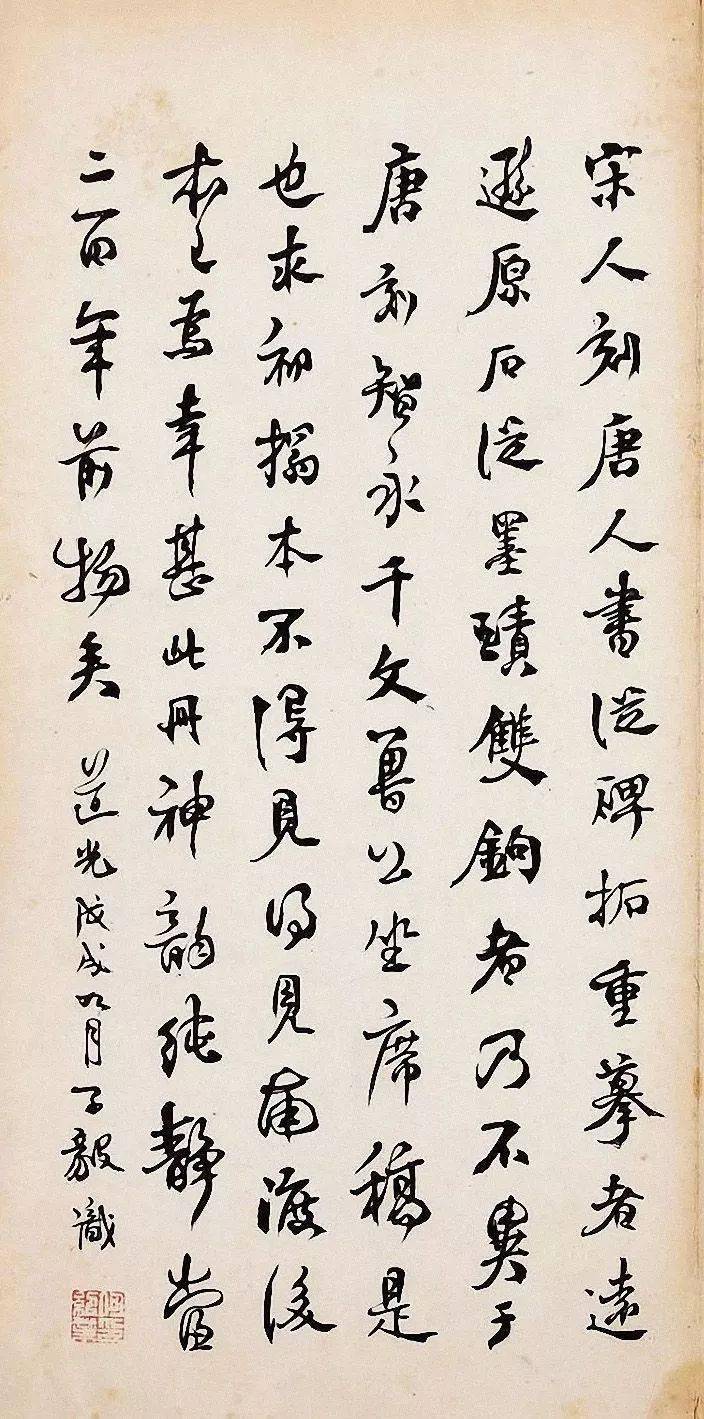 宋人刻唐人書從碑拓重摹者遠
遜原石從墨蹟雙鉤者乃不異于
唐刻智永千文魯公坐席稿是
也求初搨本不得見得見南渡後
本已焉幸甚此冊神韻純靜當
二百年前物矣 道光戊戌九月子毅識